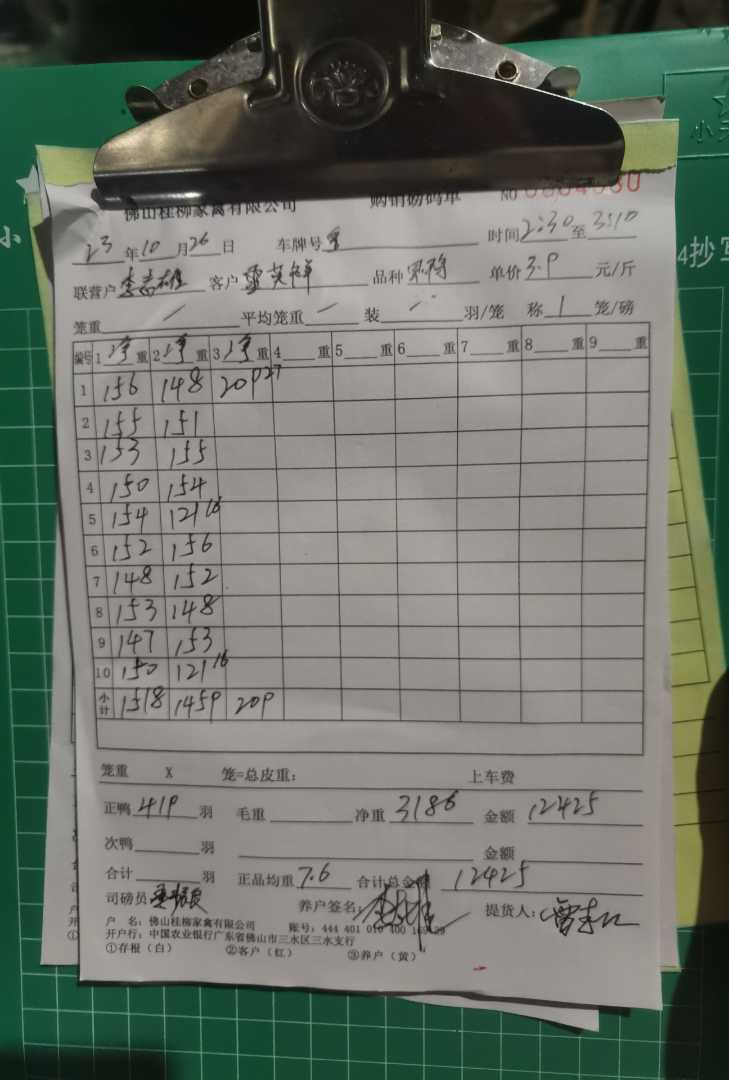 佛山桂柳家禽有限公司 购销磅码单 NO
23年10月26日 车牌号 时间2:30至3:10
联营户 客户 品种 单价3.9元/斤
笼重 / 平均笼重 / 装 / 羽/笼 称1笼/磅
编号 1净重 2净重 3净重 4 重 5 重 6 重 7 重 8 重 9 重
1 156 148 209 27
2 155 151
3 153 155
4 150 154
5 154 121 16
6 152 156
7 148 152
8 153 148
9 147 153
10 150 121 16
小计 1518 1459 209
笼重 X 笼=总皮重: 上车费
正鸭419羽 毛重 净重3186 金额12425
次鸭 羽 金额
合计 羽 正品均重7.6 合计总金额12425
司磅员 养户签名: 提货人:
户 名: 佛山桂柳家禽有限公司 账号: 444 401 010 400
开户行: 中国农业银行广东省佛山市三水区三水支行
①存根(白) ②客户(红) ③养户(黄)
小
4抄写